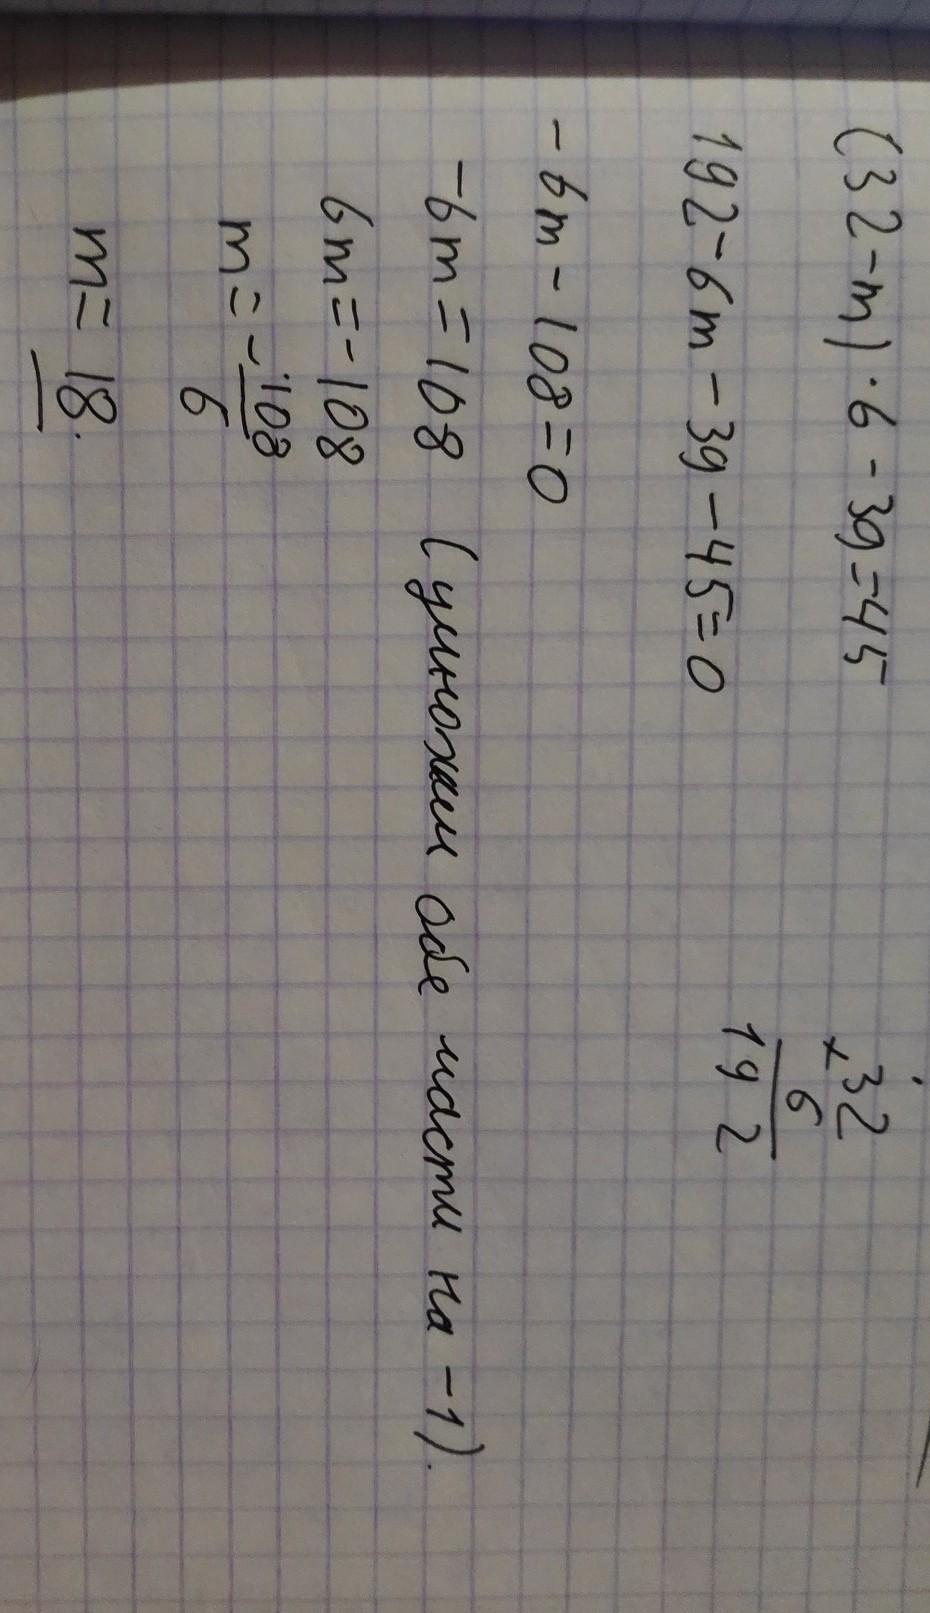 (32-m)·6-39=45
192-6m-39-45=0
-6m-108=0
-6m=108 (умножим обе части на -1).
6m=-108
m=-108
6
m=18.
×32
6
192